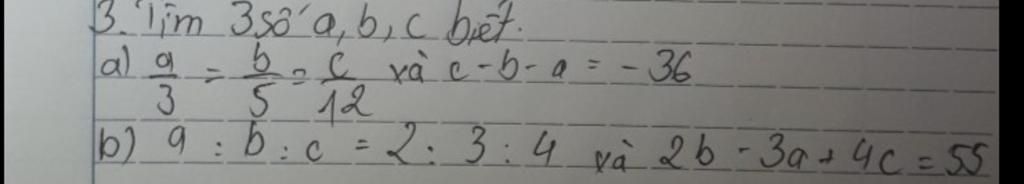 3. Tìm 3 số a, b, c biết.
a) a/3 = b/5 = c/12 và c - b - a = - 36
b) a : b : c = 2 : 3 : 4 và 2b - 3a + 4c = 55